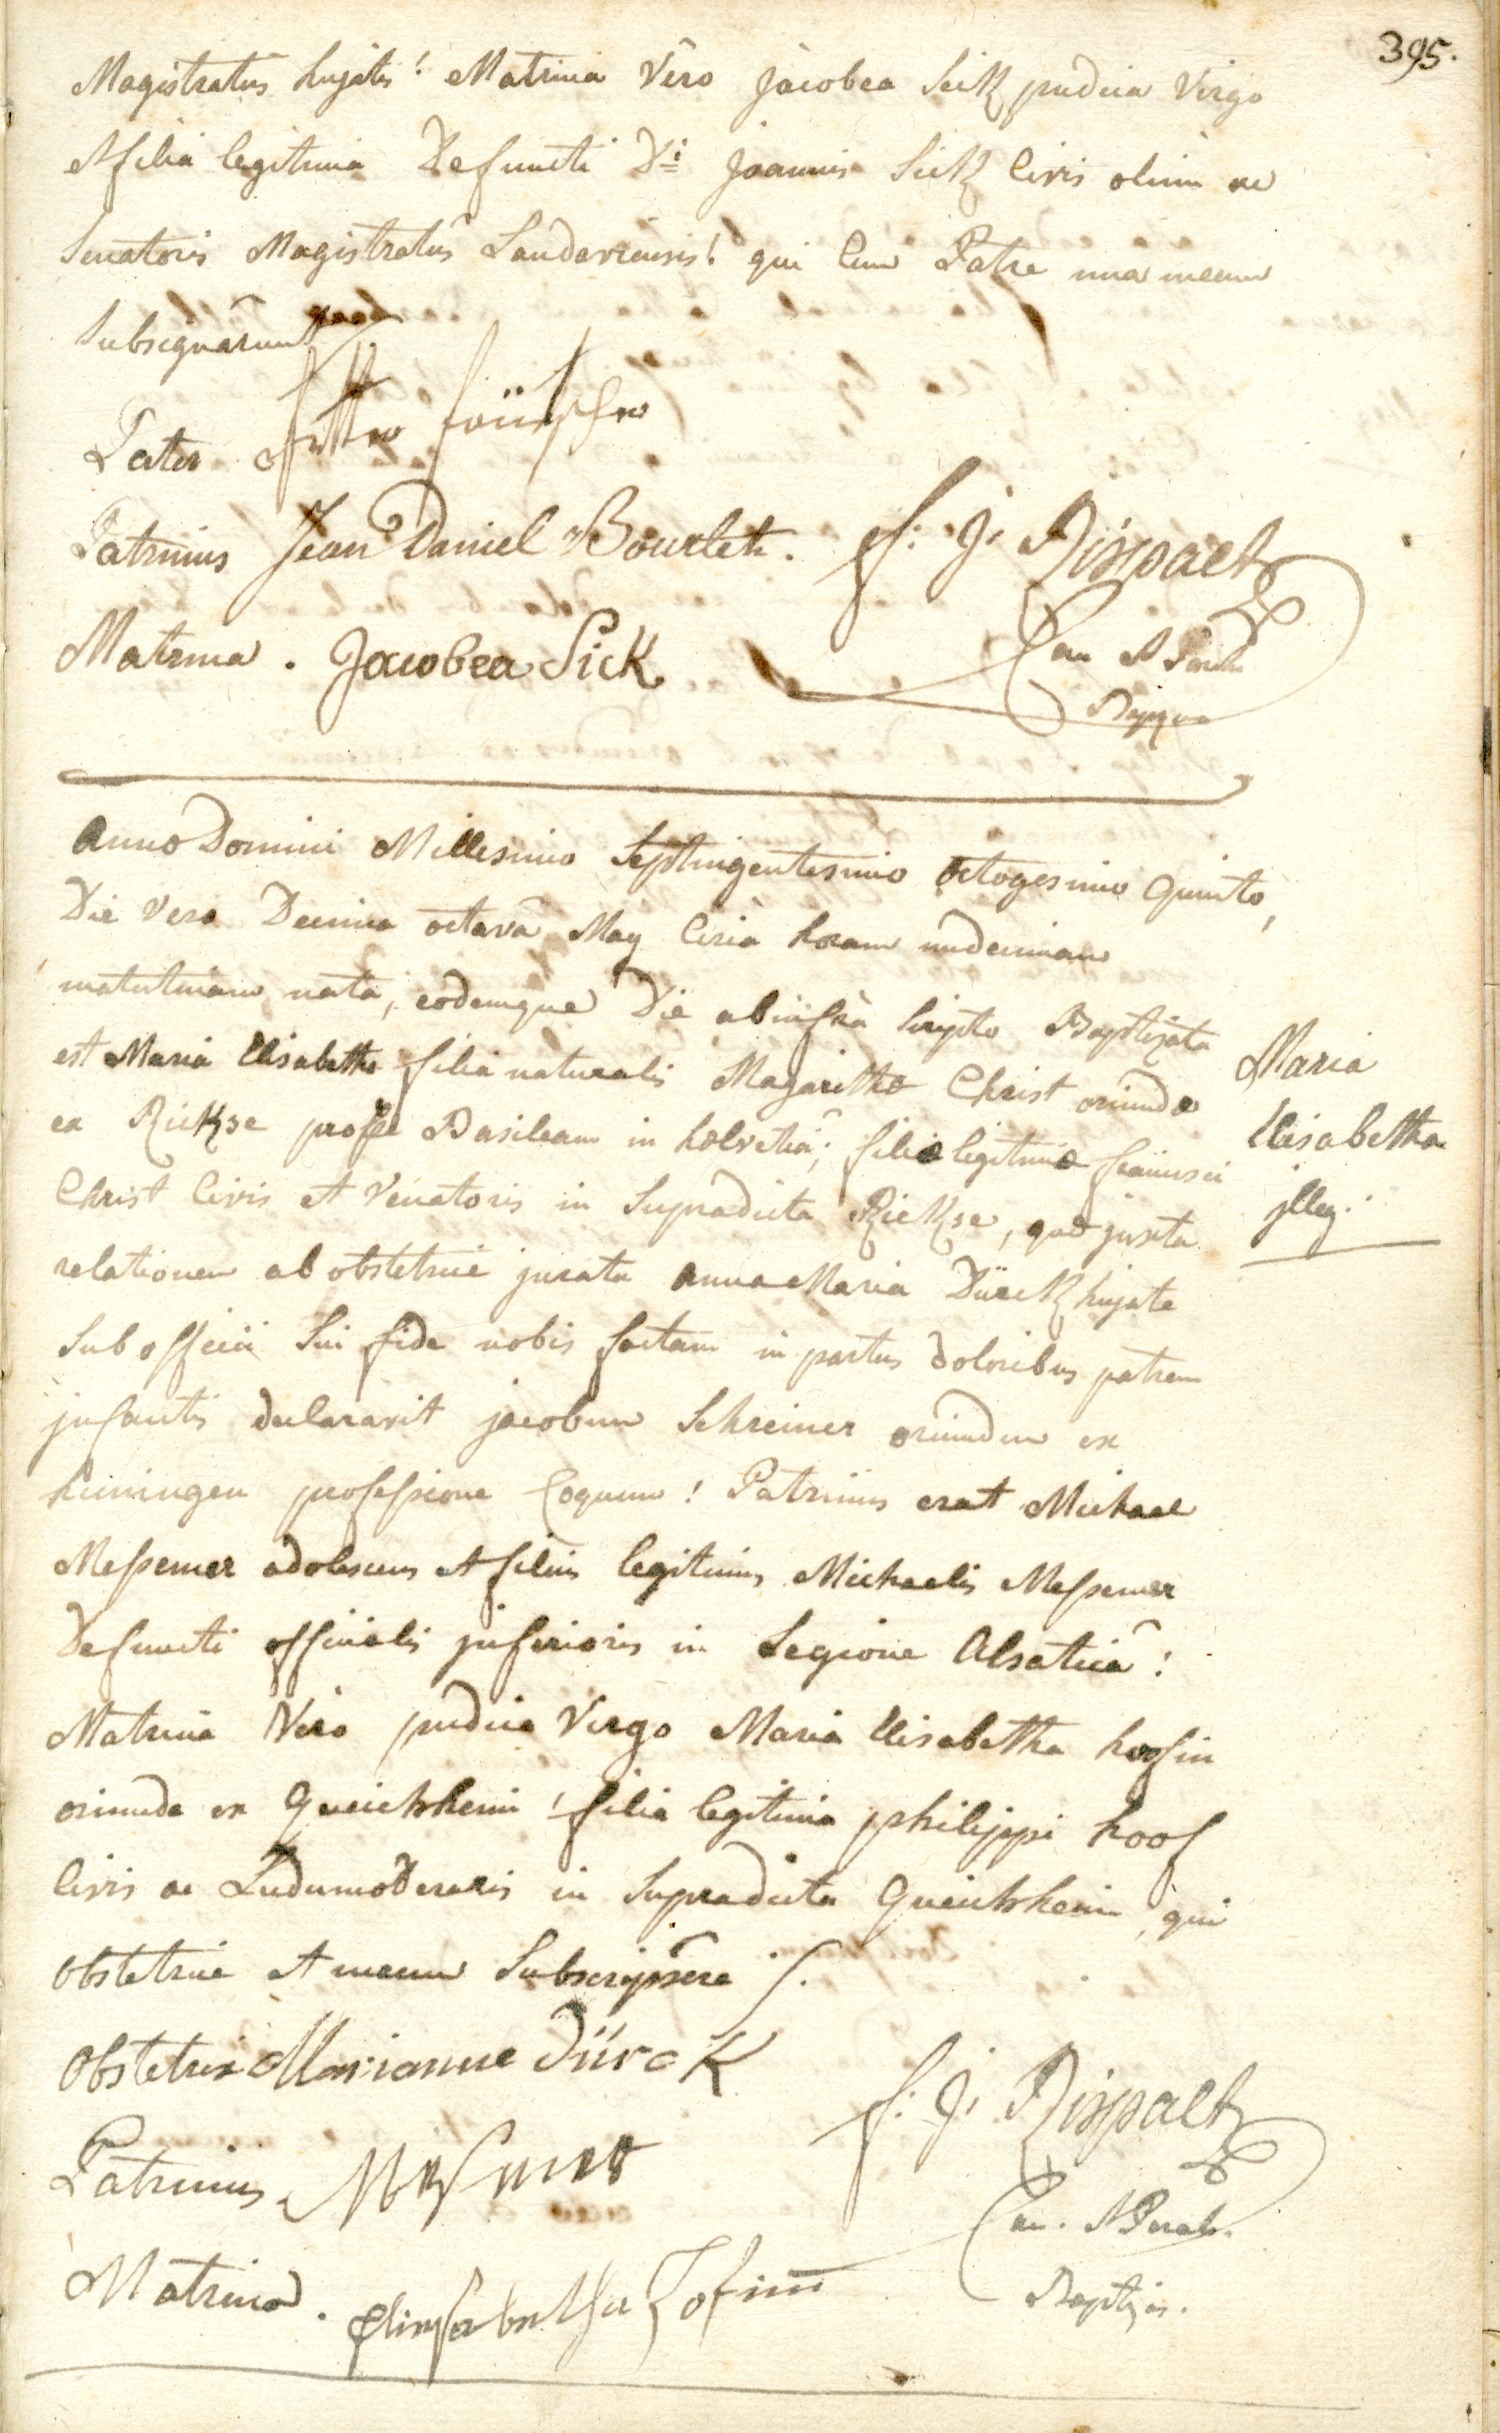 395.
Magistratus hujatis! Matrina Vero Jacobea Sick pudica Virgo
et filia legitima Defuncti Di Joannis Sick Civis olim ac
Senatoris Magistratus Landaviensis! qui Cum Patre una mecum
Subsignarunt
Pater
Patrinus Jean Daniel Bourlet. f: J: Dispach
Matrina. Jacobea Sick Can et Paroch
Anno Domini Millesimo Septingentesimo octogesimo quinto,
Die vero Decima octava May Circa horam undecimam
matutinam nata, eodemque Die ab infra Scripto Baptizata
est Maria Elisabetha filia naturalis Magarithæ Christ oriundæ
ex prope Basileam in helvetia; filiæ legitimæ
Christ Civis et Venatoris in Supradicta, quæ juxta
relationem ab obstetrice jurata Anna Maria Dürck hujate
Sub officii Sui fide nobis factam in partus doloribus patrem
jnfantis declaravit jacobum Schreiner oriundum ex
huningen professione Coquum! Patrinus erat Michael
Messemer adolescens et filius legitimus Michaelis Messemer
Defuncti officialis jnferioris in Legione Alsatica!
Matrina Vero pudica Virgo Maria Elisabetha hoofin
oriunda ex Queichheim! filia legitima philippi hoof
Civis ac Ludimoderatoris in Supradicta Queichheim, qui
obstetrice et mecum Subscripsere
Maria
Elisabetha
jlleg.
obstetrix Marianne Dürck
Patrinus Messmer f: J: Dispach
Can. et Paroch.
Matrina. Elisabetha Hofin Baptizans.